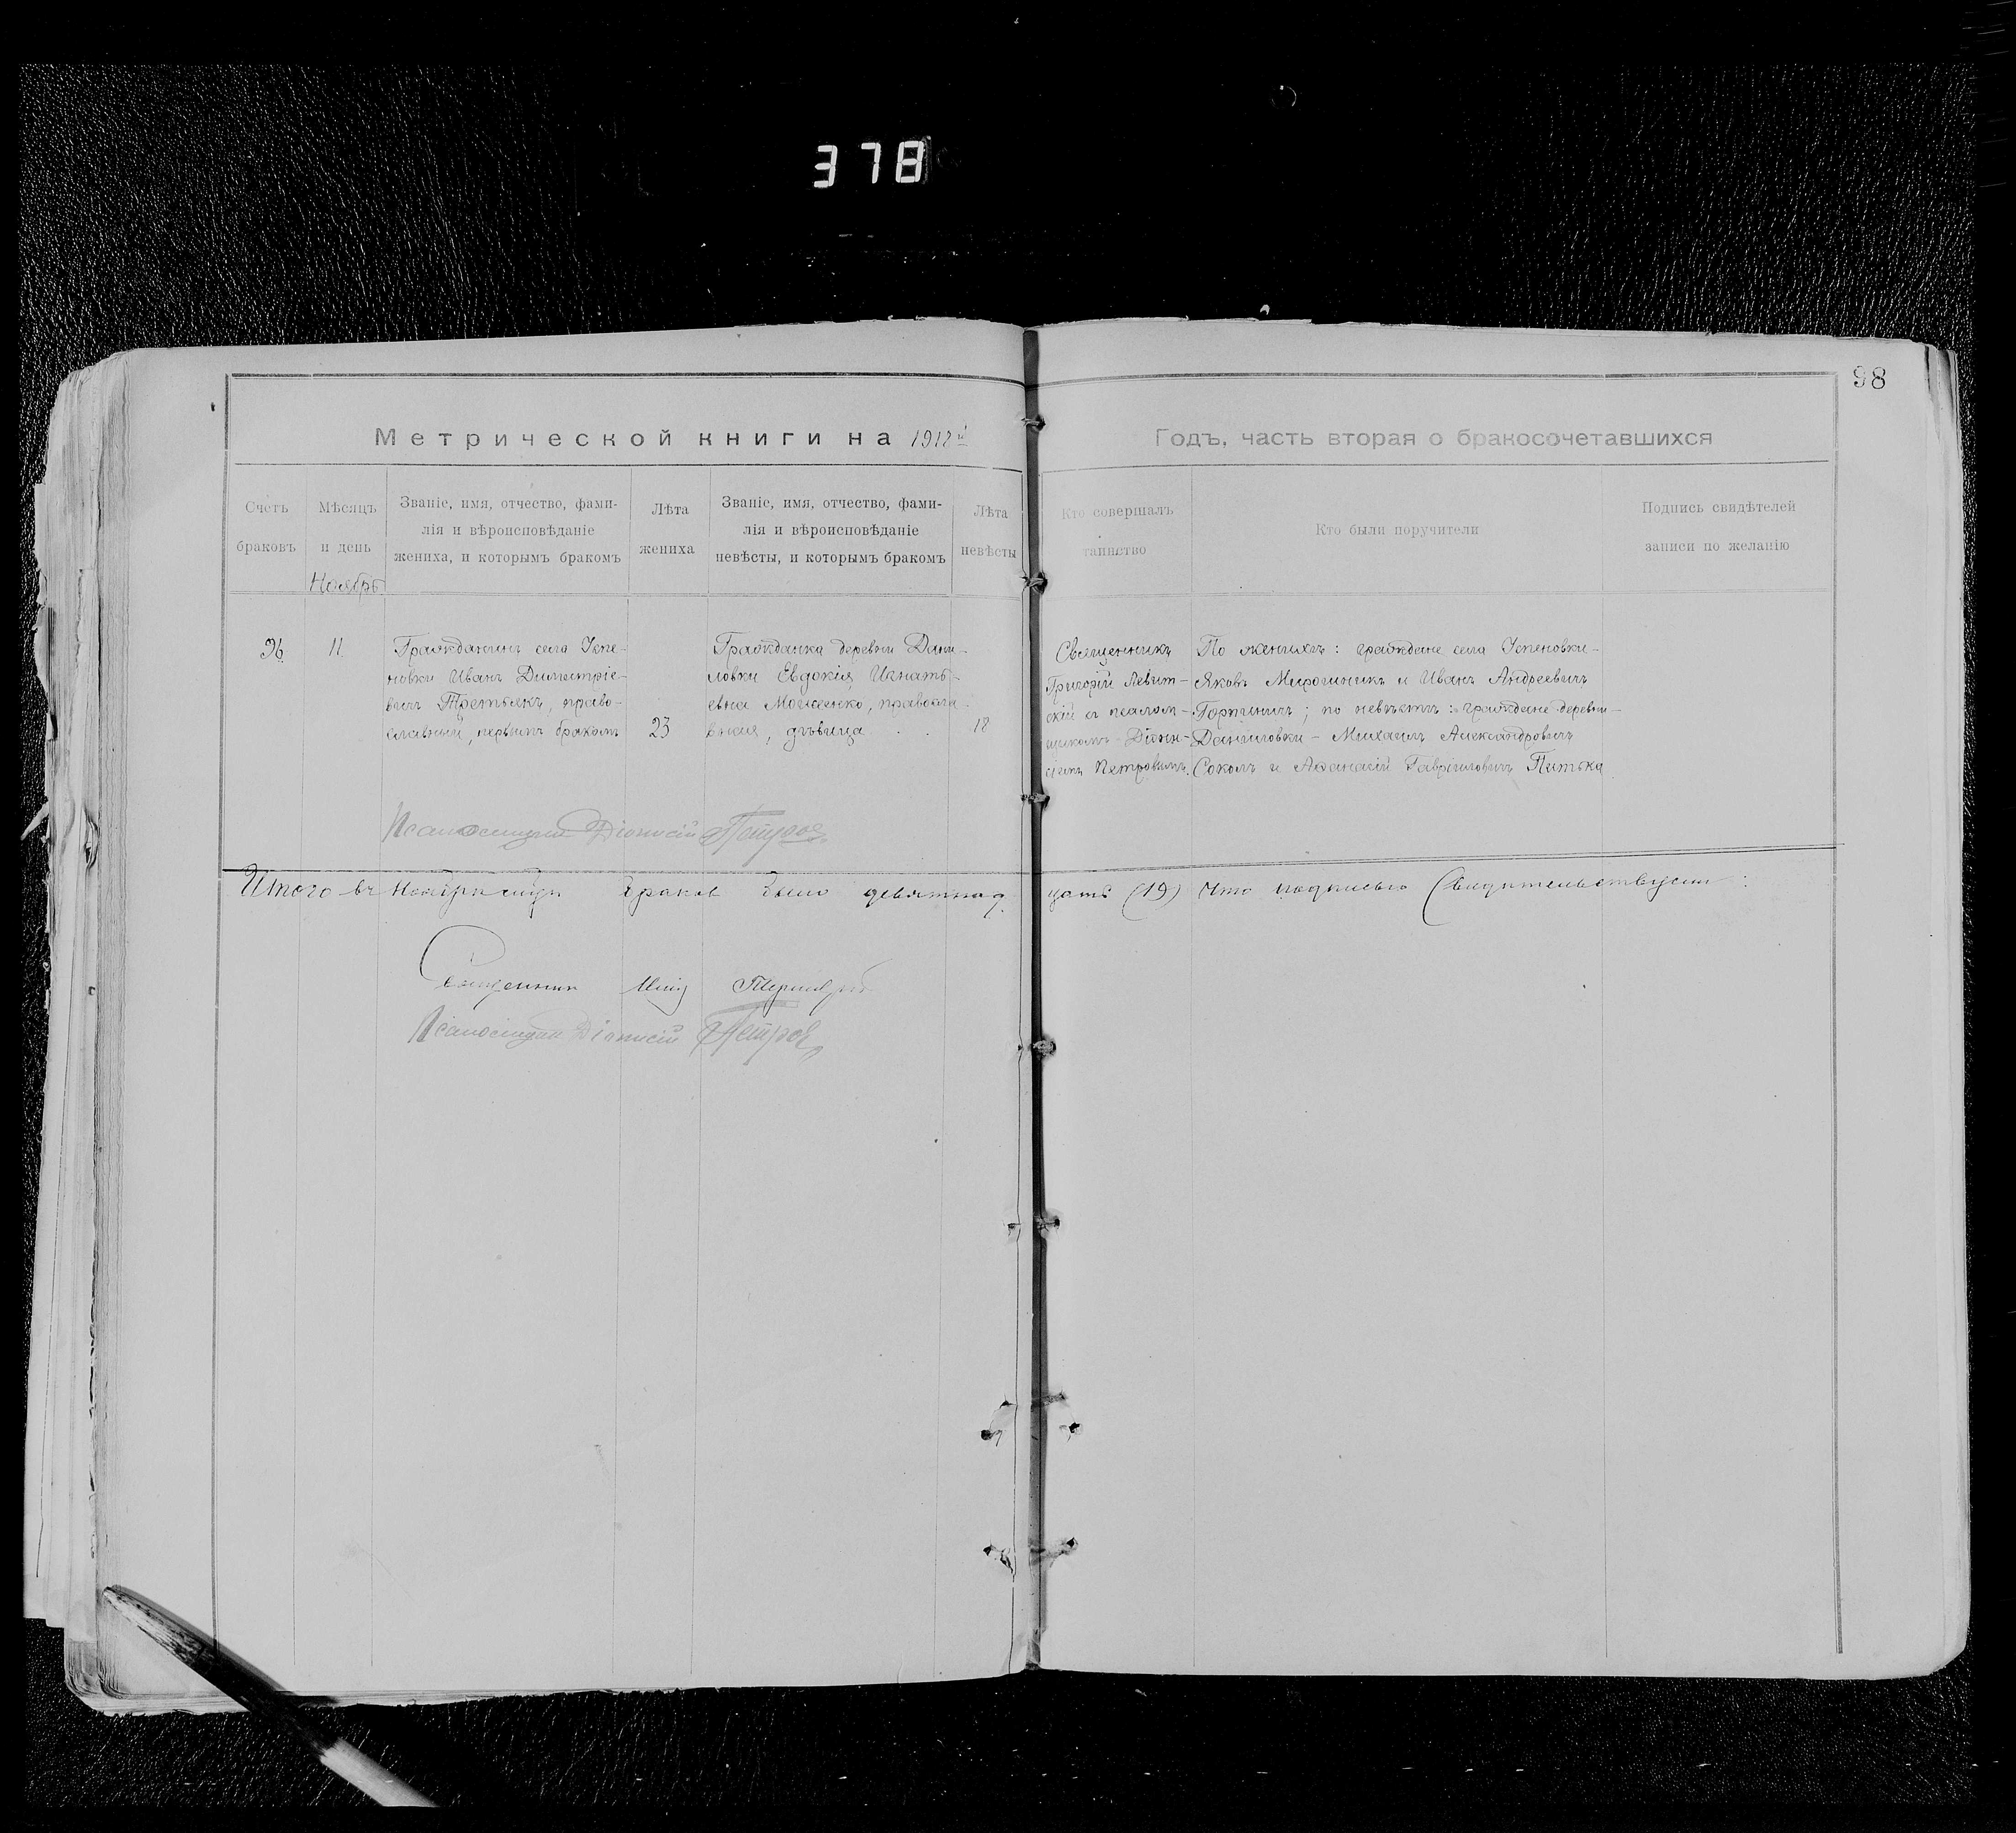 378
98
Метрической книги на 1918й
Годъ, часть вторая о бракосочетавшихся
Счетъ браковъ
Мѣсяцъ и день
Ноябрь
Званіе, имя, отчество, фами-
лія и вѣроисповѣданіе
жениха, и которымъ бракомъ
Лѣта жениха
Званіе, имя, отчество, фами-
лія и вѣроисповѣданіе
невѣсты, и которымъ бракомъ
Лѣта невѣсты
Кто совершалъ таинство
Кто были поручители
Подпись свидѣтелей
записи по желанію
36
11
Гражданинъ села Успе-
новки Иванъ Димитріе-
вичъ Третьякъ, право-
славный, первымъ бракомъ
23
Гражданка деревни Дани-
ловки Евдокія Игнать-
евна Моисеенко, правосла-
вная, дѣвица
18
Священникъ
Григорій Левит-
скій съ псалом-
щикомъ Діони-
сіемъ Петровымъ.
По женихѣ: граждане села Успеновки-
Яковъ Мирошникъ и Иванъ Андреевичъ
Горпиничъ; по невѣстѣ: граждане деревни
Даниловки - Михаилъ Александровичъ
Соколъ и Афанасій Гавріиловичъ Питька
Псаломщикъ Діонисій Петровъ
Итого въ Ноябрѣ браков было девятнад-
цать (19) что подписью свидѣтельствуем:
Священник
Псаломщик Діонисій Петров